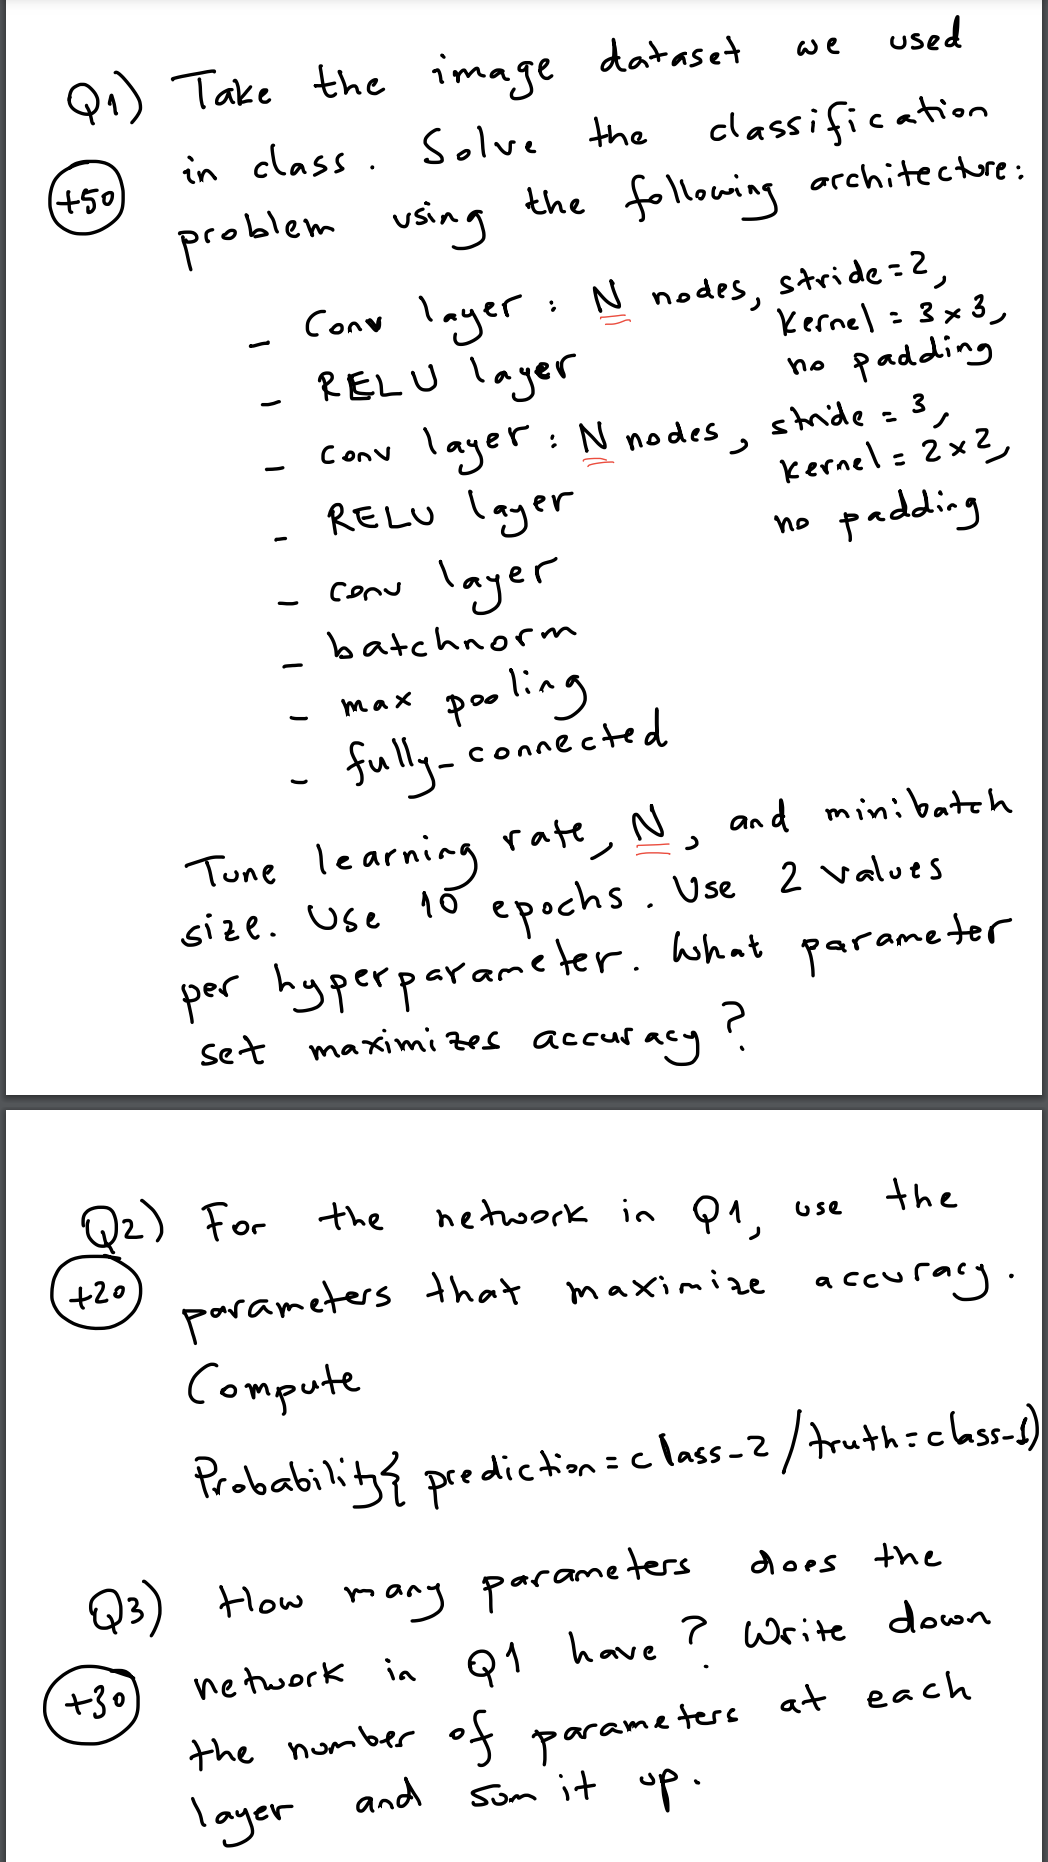 Q1) Take the image dataset we used
+50 in class. Solve the classification
problem using the following architecture:
- Conv layer : N nodes, stride = 2,
kernel = 3 x 3,
no padding
- RELU layer
- conv layer : N nodes, stride = 3,
kernel = 2 x 2,
no padding
- RELU layer
- conv layer
- batchnorm
- max pooling
- fully-connected
Tune learning rate, N, and minibatch
size. Use 10 epochs. Use 2 values
per hyperparameter. What parameter
set maximizes accuracy?
Q2) For the network in Q1, use the
+20 parameters that maximize accuracy.
Compute
Probability{ prediction = class-2 / truth = class-1)
Q3) How many parameters does the
+30 network in Q1 have? Write down
the number of parameters at each
layer and sum it up.